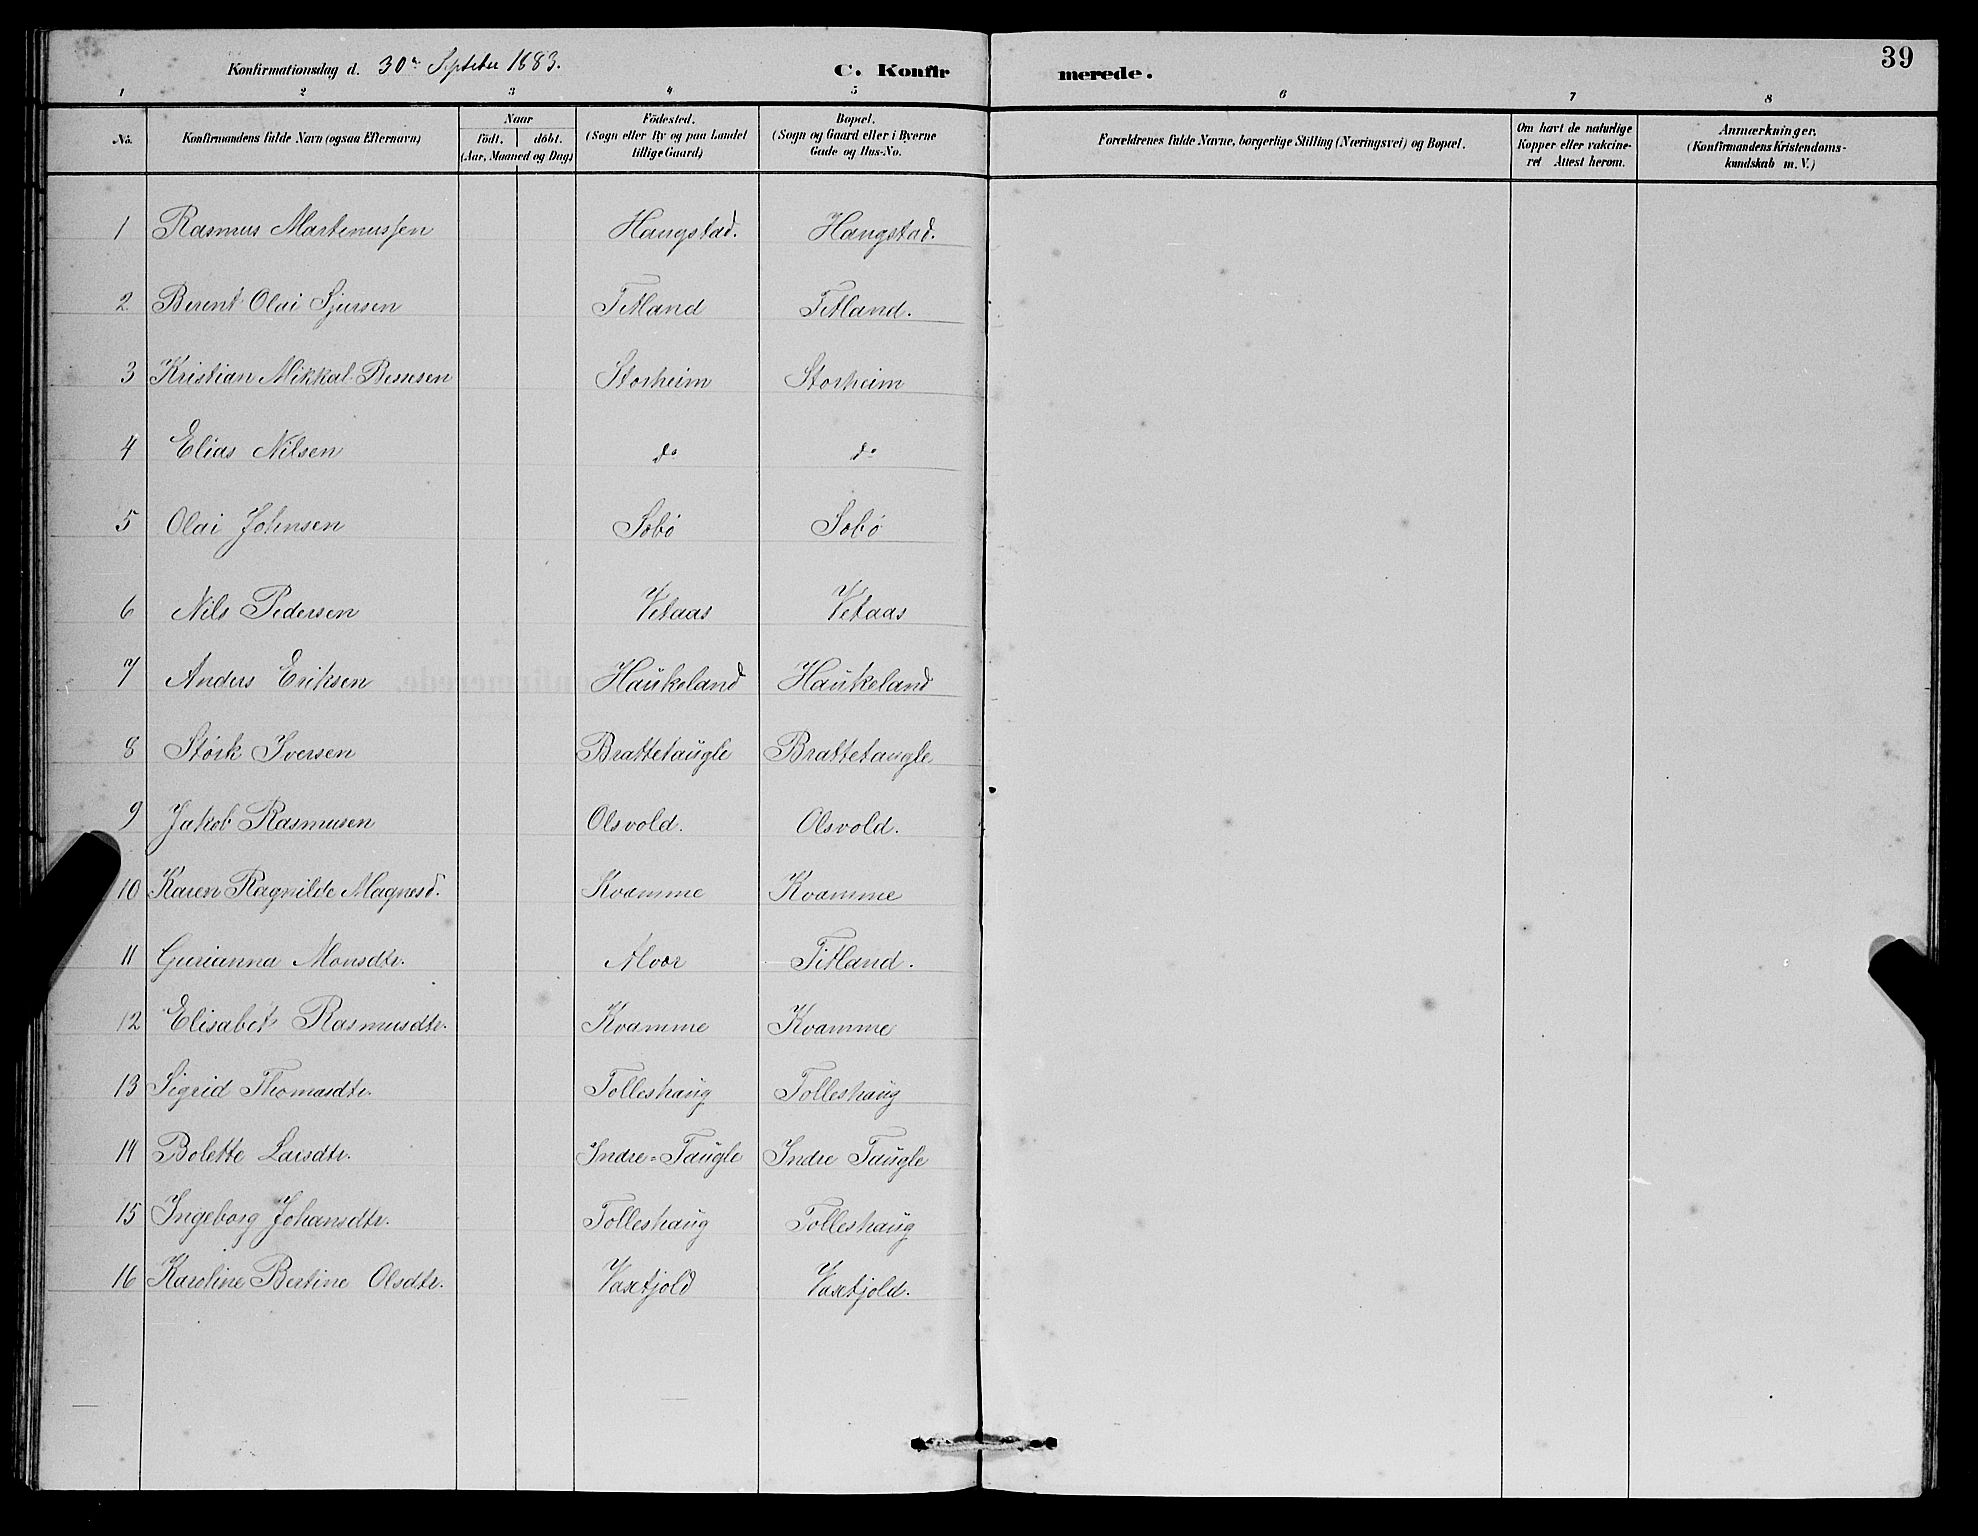 39
Konfirmationsdag d. 30te Septeber 1883. C. Konfirmerede.
1 2 3 4 5 6 7 8
No. Konfirmandens fulde Navn (ogsaa Efternavn) Naar födt. döbt. (Aar, Maaned og Dag) Födested. (Sogn eller By og paa Landet tillige Gaard) Bopæl. (Sogn og Gaard eller i Byerne Gade og Hus-No. Forældrenes fulde Navne, borgerlige Stilling (Næringsvei) og Bopæl. Om havt de naturlige Kopper eller vakcineret Attest herom. Anmærkninger. (Konfirmandens Kristendomskundskab m. V.)
1 Rasmus Martinussen Haugstad. Haugstad.
2 Berent Olai Sjursen Titland Titland.
3 Kristian Mikkal Bessesen Storheim Storheim
4 Elias Nilsen do do
5 Olai Johnsen Sobø Sobø
6 Nils Pedersen Vetaas Vetaas
7 Anders Eriksen Haukeland Haukeland
8 Størk Iversen Brattetaugle Brattetaugle
9 Jakob Rasmusen Olsvold. Olsvold.
10 Karen Ragnilde Magnesd. Kvamme Kvamme
11 Gurianna Monsdtr. Alvær Titland.
12 Elisabet Rasmusdtr. Kvamme Kvamme
13 Sigrid Thomasdtr. Tolleshaug Tolleshaug
14 Bolette Larsdtr. Indre-Taugle Indre Taugle
15 Ingeborg Johansdtr. Tolleshaug Tolleshaug
16 Karoline Bertine Olsdtr. Vaxtjold Vaxtjold.